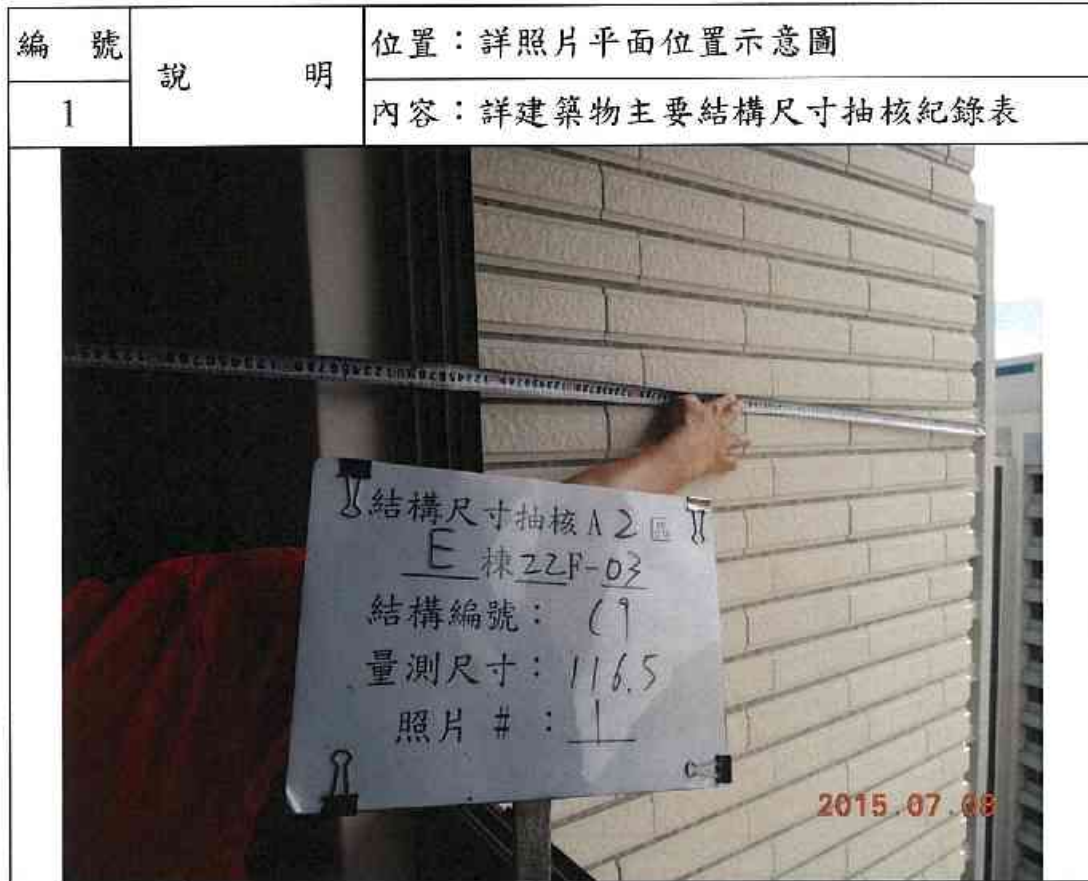 編 號
說 明
位置：詳照片平面位置示意圖
1
內容：詳建築物主要結構尺寸抽核紀錄表
結構尺寸抽核 A 2 區
E 棟 22F-03
結構編號： C9
量測尺寸： 116.5
照片 # ： 1
2015.07.08